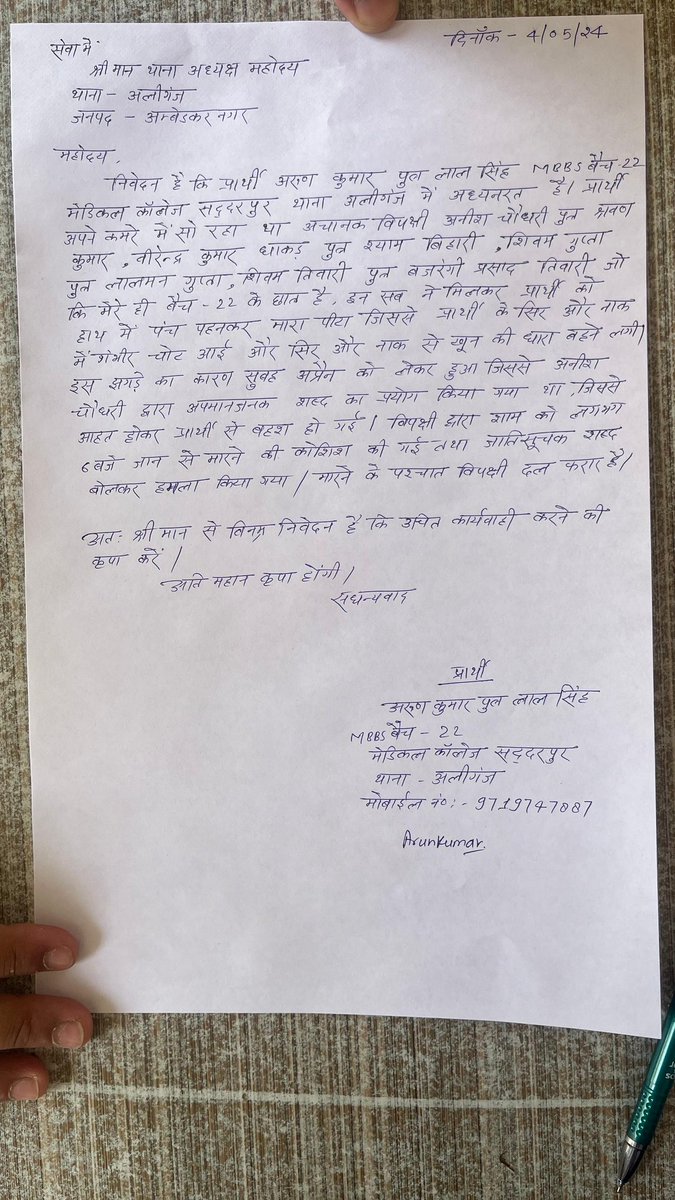 दिनाँक - 4/05/24
सेवा में
श्री मान थाना अध्यक्ष महोदय
थाना - अलीगंज
जनपद - अम्बेडकर नगर
महोदय,
निवेदन है कि प्रार्थी अरुण कुमार पुत्र लाल सिंह MBBS बैच-22
मेडिकल कॉलेज सद्दरपुर थाना अलीगंज में अध्यनरत है। प्रार्थी
अपने कमरे में सो रहा था अचानक विपक्षी अनीश चौधरी पुत्र श्रवण
कुमार, वीरेन्द्र कुमार धाकड़ पुत्र श्याम बिहारी, शिवम गुप्ता
पुत्र लालमन गुप्ता, शिवम तिवारी पुत्र बजरंगी प्रसाद तिवारी जो
कि मेरे ही बैच -22 के छात्र है, इन सब ने मिलकर प्रार्थी को
हाथ में पंच पहनकर मारा पीटा जिससे प्रार्थी के सिर और नाक
में गंभीर चोट आई और सिर और नाक से खून की धारा बहने लगी।
इस झगड़े का कारण सुबह अप्रैन को लेकर हुआ जिससे अनीश
चौधरी द्वारा अपमानजनक शब्द का प्रयोग किया गया था, जिससे
आहत होकर प्रार्थी से बहश हो गई। विपक्षी द्वारा शाम को लगभग
6 बजे जान से मारने की कोशिश की गई तथा जातिसूचक शब्द
बोलकर हमला किया गया। मारने के पश्चात विपक्षी दल फरार है।
अतः श्री मान से विनम्र निवेदन है कि उचित कार्यवाही करने की
कृपा करें।
अति महान कृपा होंगी।
सधन्यवाद
प्रार्थी
अरुण कुमार पुत्र लाल सिंह
MBBS बैच - 22
मेडिकल कॉलेज सद्दरपुर
थाना - अलीगंज
मोबाईल नं०:- 9719747887
Arunkumar.